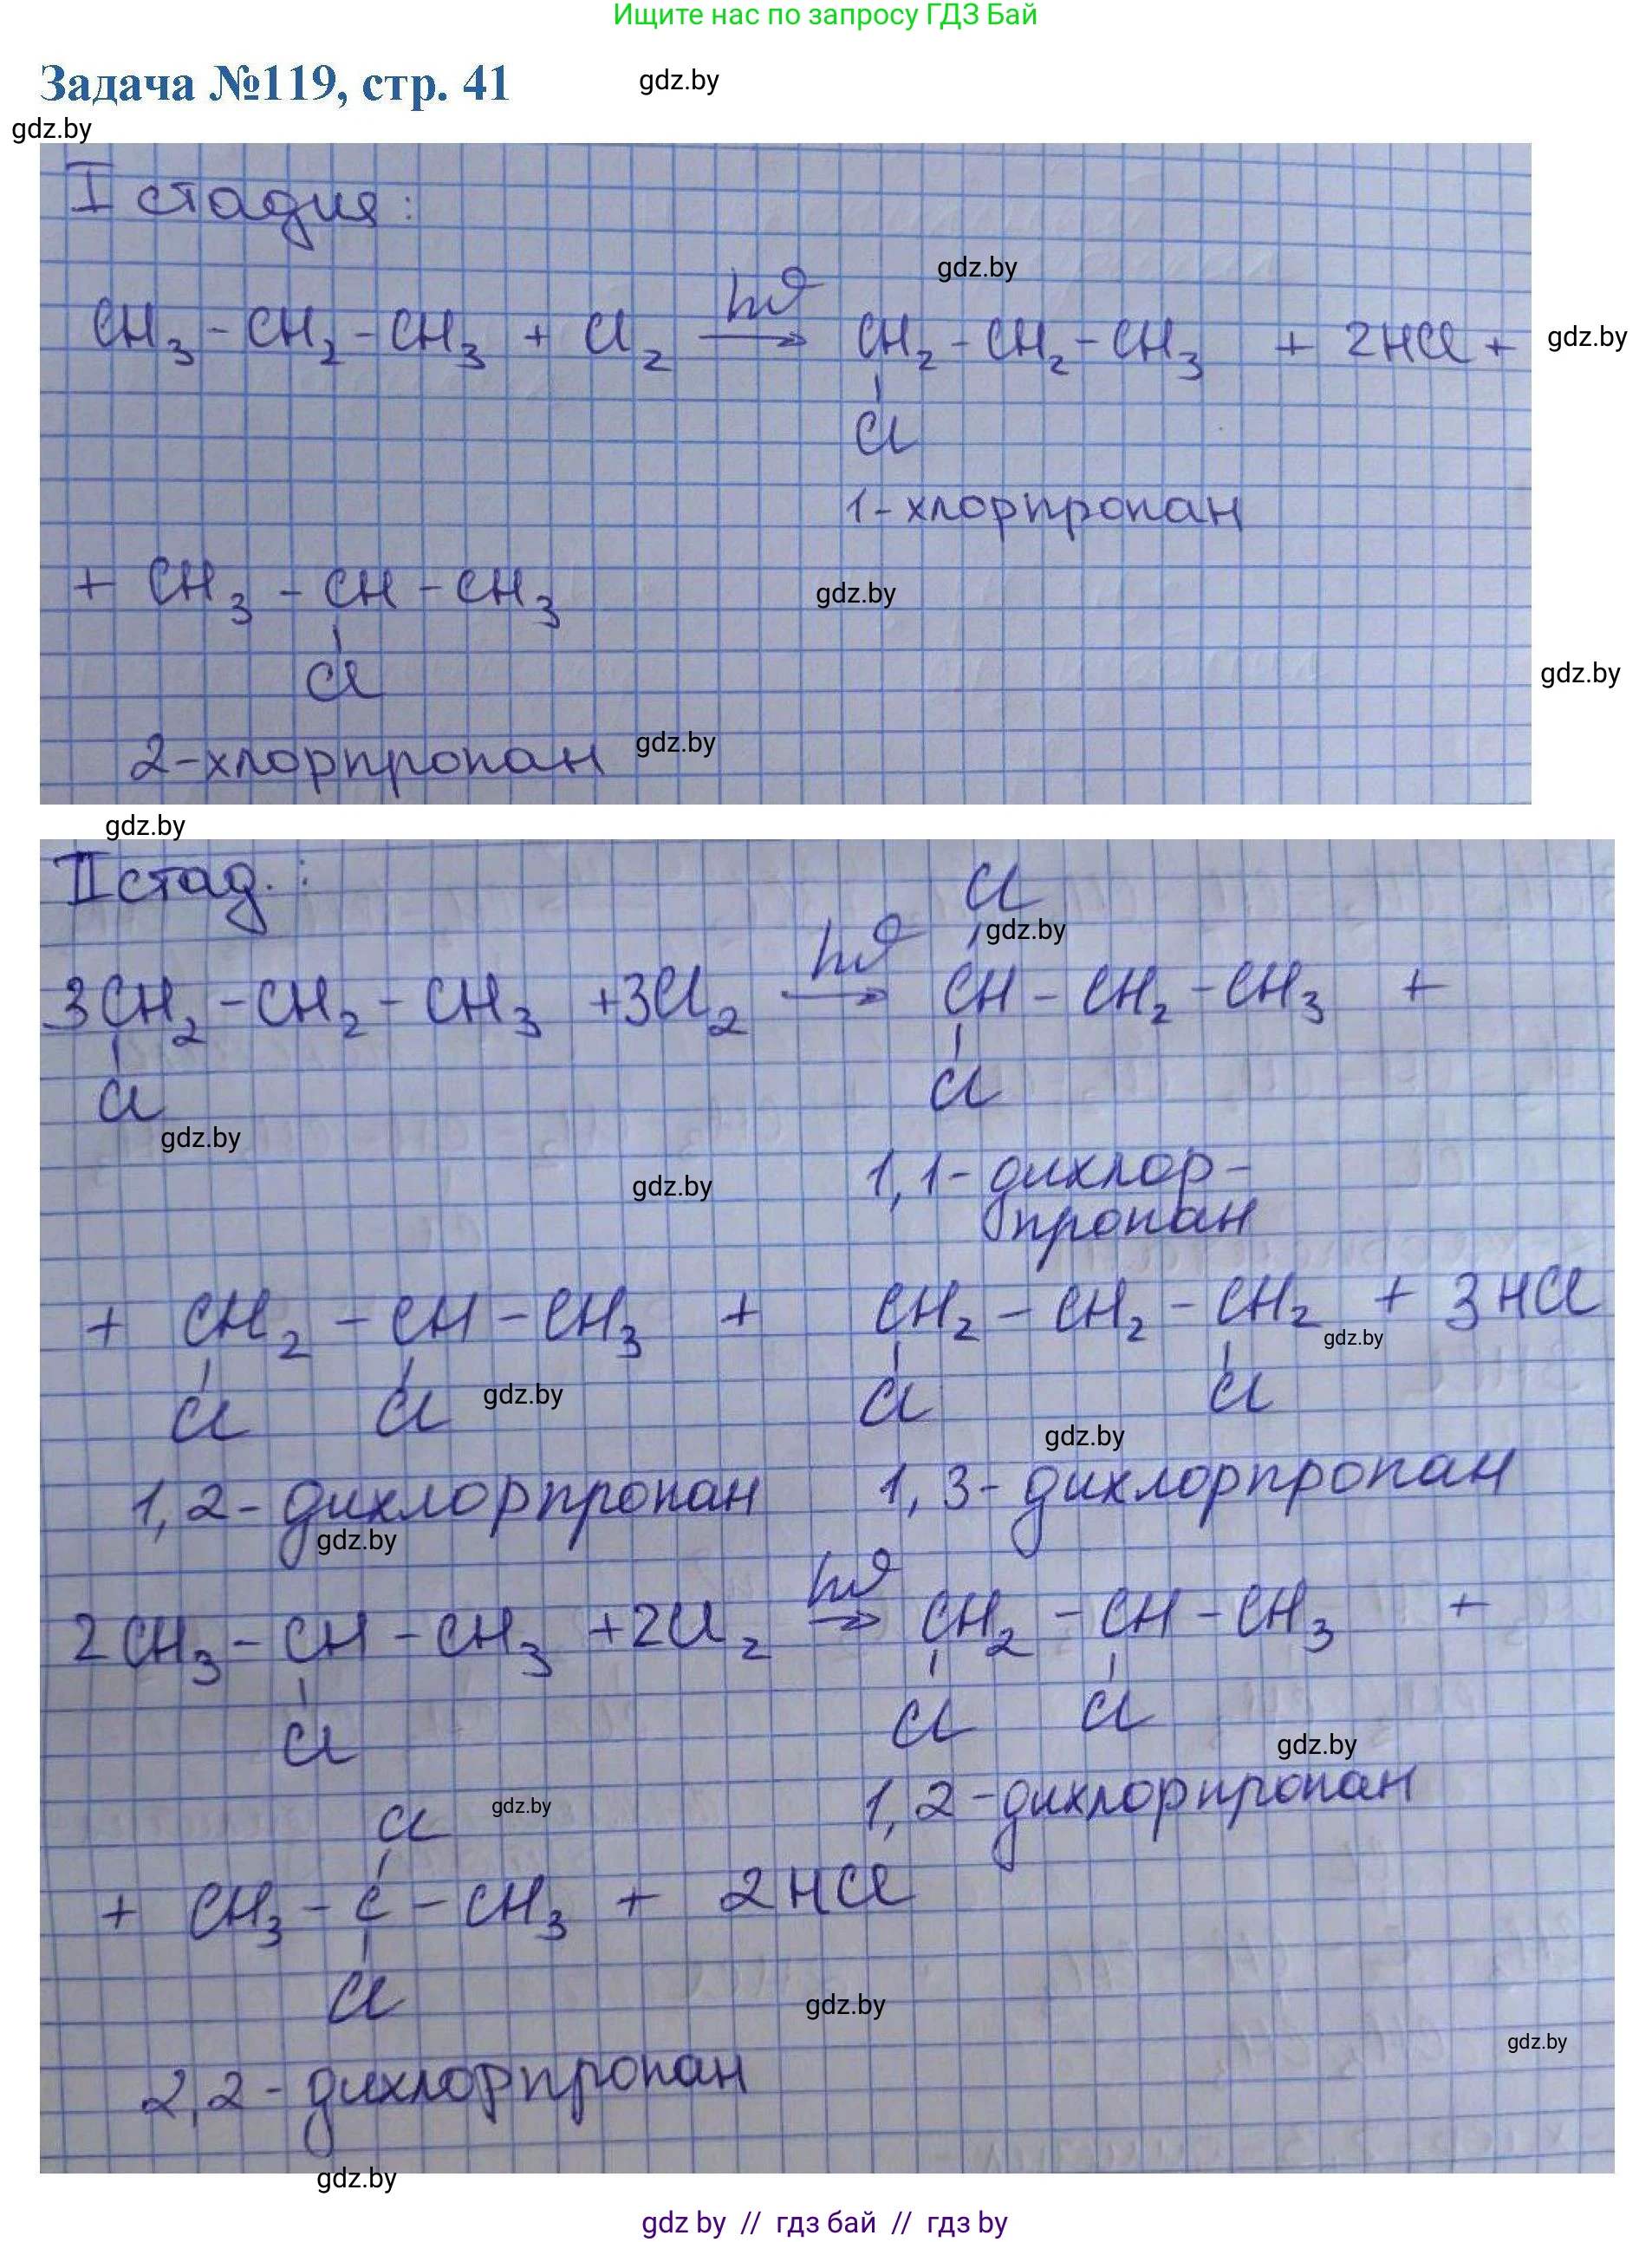 Ищите нас по запросу ГДЗ Бай
Задача №119, стр. 41
gdz.by
gdz.by
I стадия:
gdz.by
hν
CH₃ - CH₂ - CH₃ + Cl₂ → CH₂ - CH₂ - CH₃ + 2HCl +
gdz.by
Cl
1-хлорпропан
+ CH₃ - CH - CH₃
gdz.by
Cl
gdz.by
2-хлорпропан
gdz.by
gdz.by
II стад. :
Cl
gdz.by
hν
3CH₂ - CH₂ - CH₃ + 3Cl₂ → CH - CH₂ - CH₃ +
Cl Cl
gdz.by
1,1-дихлор-
gdz.by
пропан
+ CH₂ - CH - CH₃ + CH₂ - CH₂ - CH₂ + 3HCl
gdz.by
Cl Cl Cl Cl
gdz.by
gdz.by
1,2-дихлорпропан 1,3-дихлорпропан
gdz.by
hν
2CH₃ - CH - CH₃ + 2Cl₂ → CH₂ - CH - CH₃ +
Cl Cl Cl
gdz.by
1,2-дихлорпропан
gdz.by
Cl
+ CH₃ - C - CH₃ + 2HCl
Cl
gdz.by
gdz.by
2,2-дихлорпропан
gdz.by
gdz by // гдз бай // гдз by